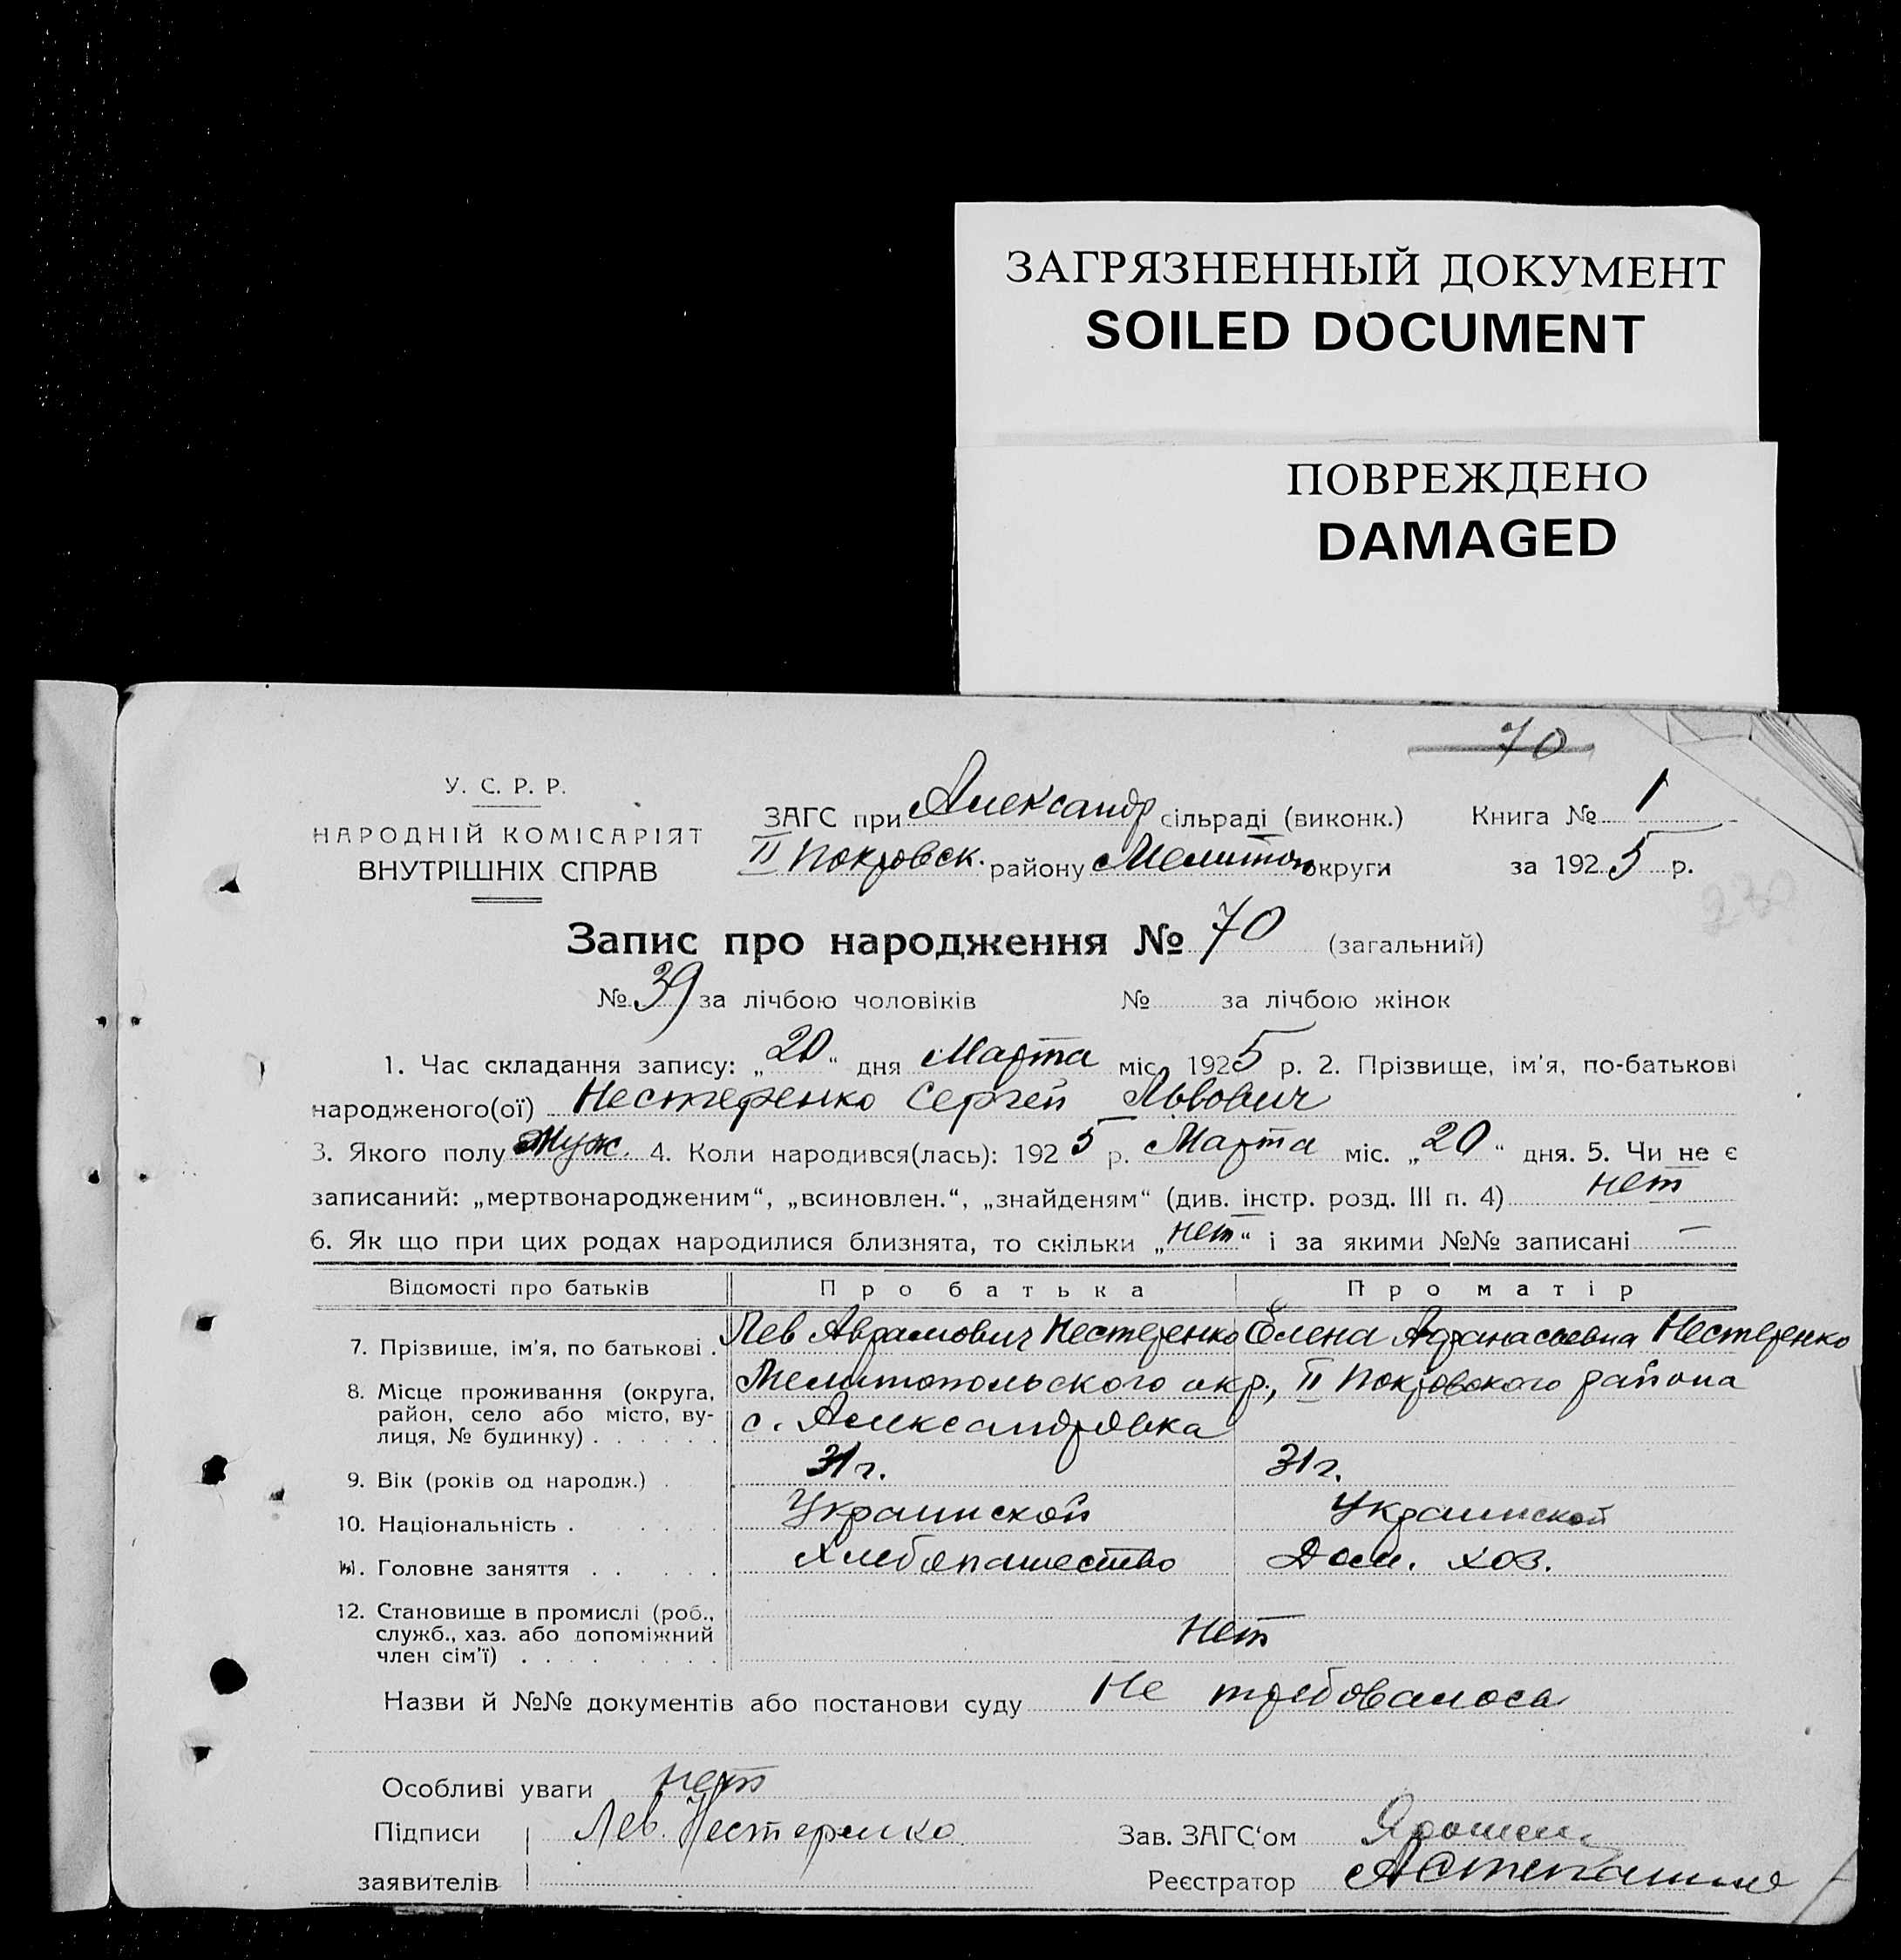 ЗАГРЯЗНЕННЫЙ ДОКУМЕНТ
SOILED DOCUMENT
ПОВРЕЖДЕНО
DAMAGED
70
У. С. Р. Р.
НАРОДНІЙ КОМІСАРІЯТ
ВНУТРІШНІХ СПРАВ
ЗАГС при Александр сільраді (виконк.) Книга № 1
II Покровск. району Мелитоп округи за 1925 р.
230
Запис про народження № 70 (загальний)
№ 39 за лічбою чоловіків № за лічбою жінок
1. Час складання запису: „20“ дня Марта міс. 1925 р. 2. Прізвище, ім'я, по-батькові
народженого(ої) Нестеренко Сергей Львович
3. Якого полу Муж. 4. Коли народився(лась): 1925 р. Марта міс. „20“ дня. 5. Чи не є
записаний: „мертвонародженим“, „всиновлен.“, „знайденям“ (див. інстр. розд. III п. 4) нет
6. Як що при цих родах народилися близнята, то скільки „нет“ і за якими №№ записані —
Відомості про батьків Про батька Про матір
7. Прізвище, ім'я, по батькові . Лев Аврамович Нестеренко Елена Афанасьевна Нестеренко
8. Місце проживання (округа, район, село або місто, вулиця, № будинку) . . . . . . Мелитопольского окр., II Покровского района
с. Александровка
9. Вік (років од народж.) . 31 г. 31 г.
10. Національність . . . . . Украинской Украинской
11. Головне заняття . . . . . Хлебопашество Дом. хоз.
12. Становище в промислі (роб., служб., хаз. або допоміжний член сім'ї) . . . . . . . . Нет
Назви й №№ документів або постанови суду Не требовалося
Особливі уваги нет
Підписи Лев. Нестеренко Зав. ЗАГС'ом
заявителів Реєстратор